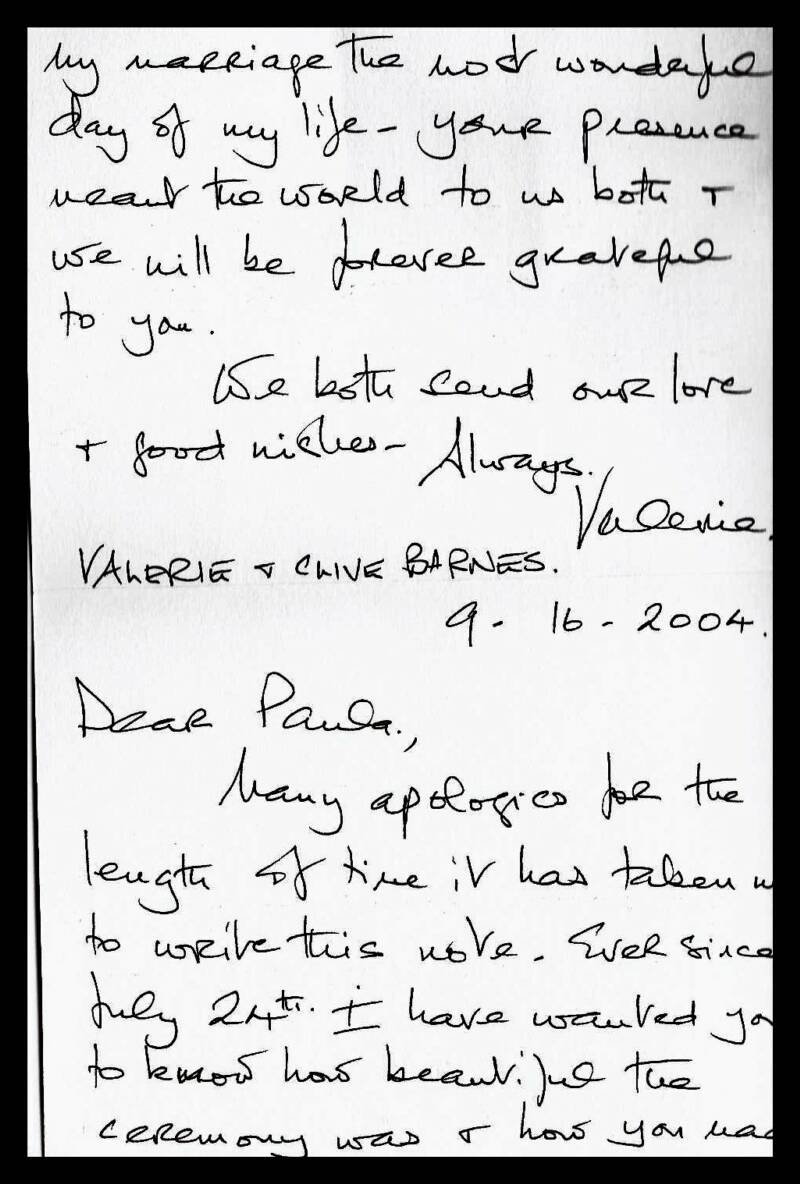 my marriage the most wonderful
day of my life - your presence
meant the world to us both +
we will be forever grateful
to you.
We both send our love
+ good wishes - Always.
Valerie.
VALERIE + CLIVE BARNES.
9 - 16 - 2004.
Dear Paula.,
Many apologies for the
length of time it has taken m
to write this note. Ever since
July 24th. I have wanted yo
to know how beautiful the
ceremony was + how you mad